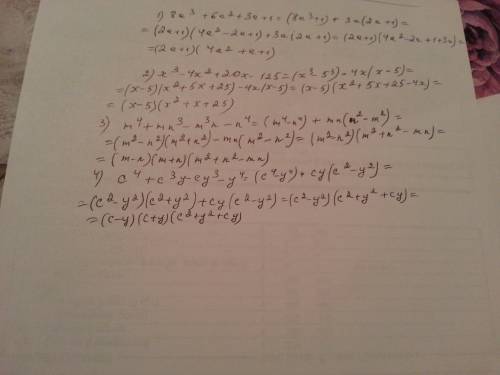 1) 8a³ + 6a² + 3a + 1 = (8a³+1) + 3a(2a+1) =
= (2a+1)(4a² - 2a + 1) + 3a(2a+1) = (2a+1)(4a² - 2a + 1 + 3a) =
= (2a+1)(4a² + a + 1)
2) x³ - 4x² + 20x - 125 = (x³ - 5³) - 4x(x - 5) =
= (x - 5)(x² + 5x + 25) - 4x(x - 5) = (x - 5)(x² + 5x + 25 - 4x) =
= (x - 5)(x² + x + 25)
3) m⁴ + mn³ - m³n - n⁴ = (m⁴ - n⁴) + mn(n² - m²) =
= (m² - n²)(m² + n²) - mn(m² - n²) = (m² - n²)(m² + n² - mn) =
= (m - n)(m + n)(m² + n² - mn)
4) c⁴ + c³y - cy³ - y⁴ = (c⁴ - y⁴) + cy(c² - y²) =
= (c² - y²)(c² + y²) + cy(c² - y²) = (c² - y²)(c² + y² + cy) =
= (c - y)(c + y)(c² + y² + cy)